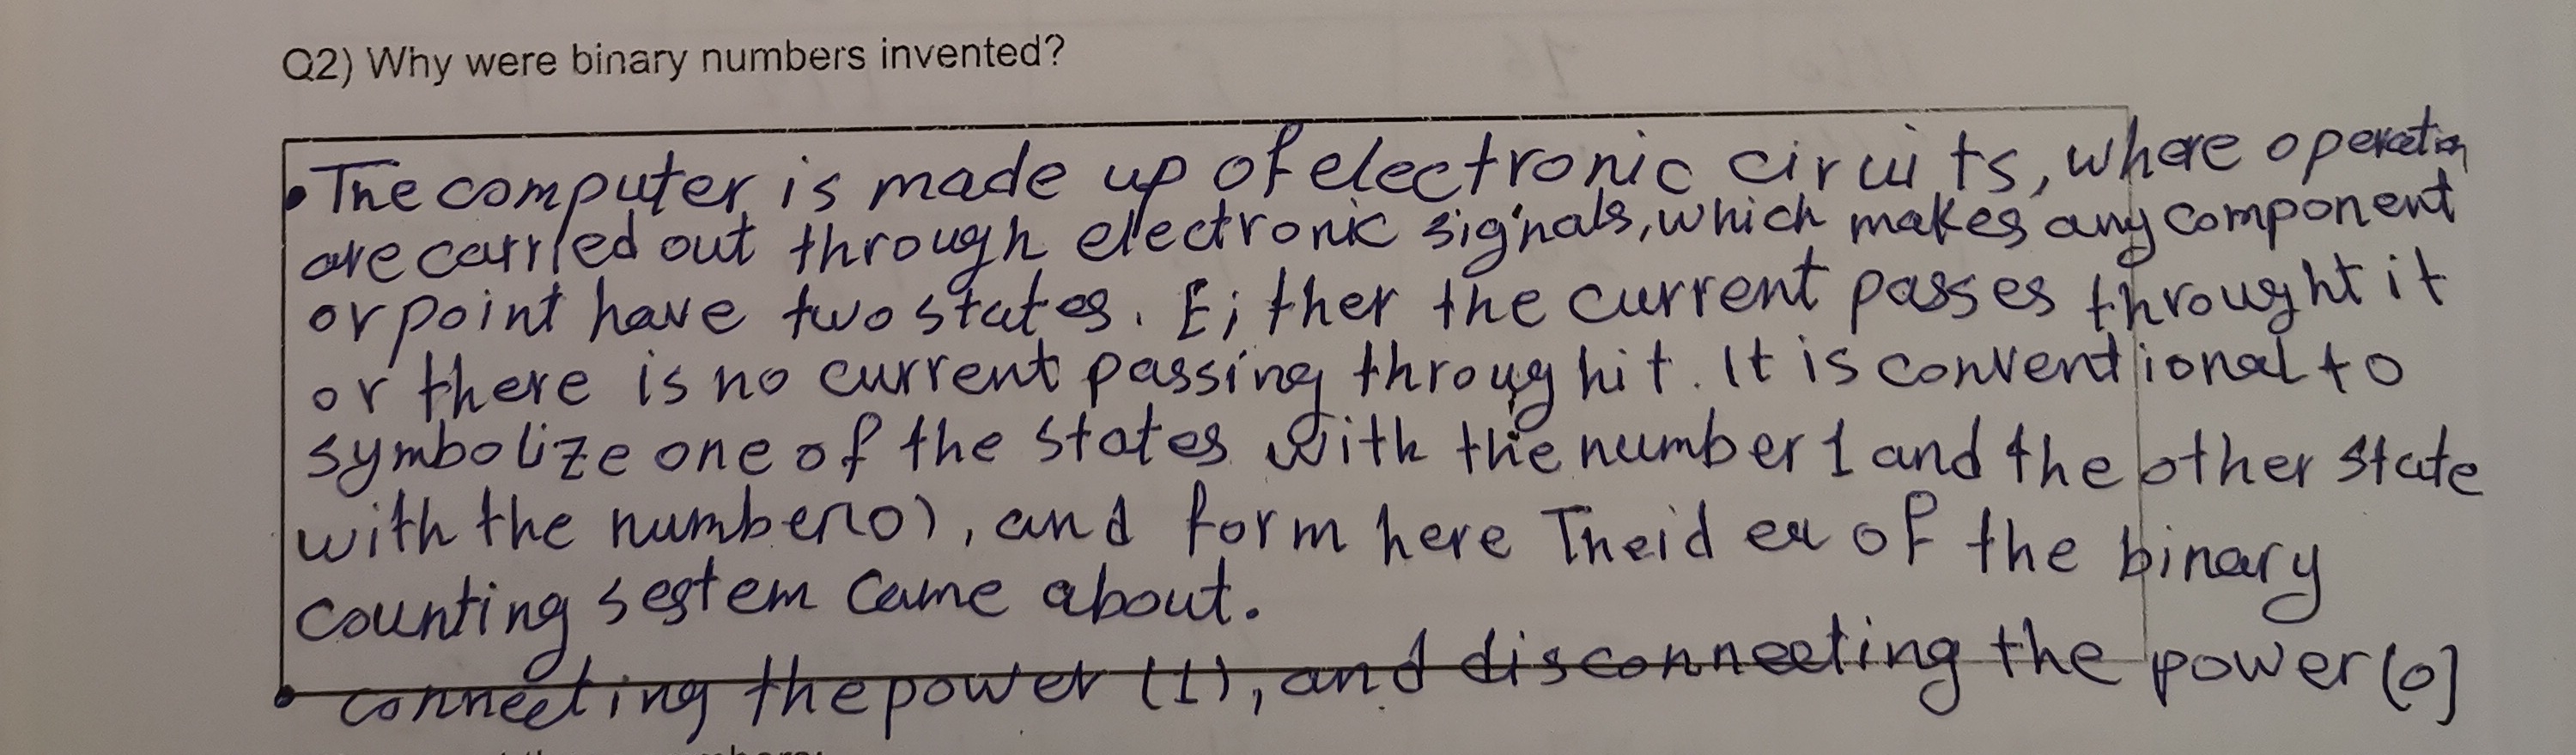 Q2) Why were binary numbers invented?
• The computer is made up of electronic circuits, where operation
are carried out through electronic signals, which makes any component
or point have two states. Either the current passes throught it
or there is no current passing through it. It is conventional to
symbolize one of the states with the number 1 and the other state
with the number (0), and form here The idea of the binary
counting sestem came about.
• connecting the power (1), and disconneeting the power (0)